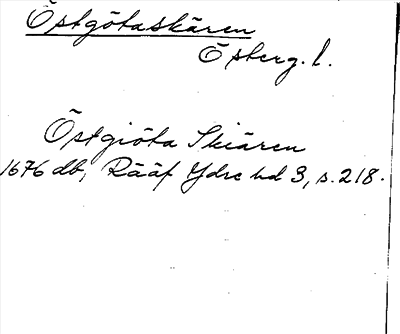 Östgötaskären
Österg. l.
Östgiöta Skiären
1676 db, Rääf Ydre hd 3, s. 218.